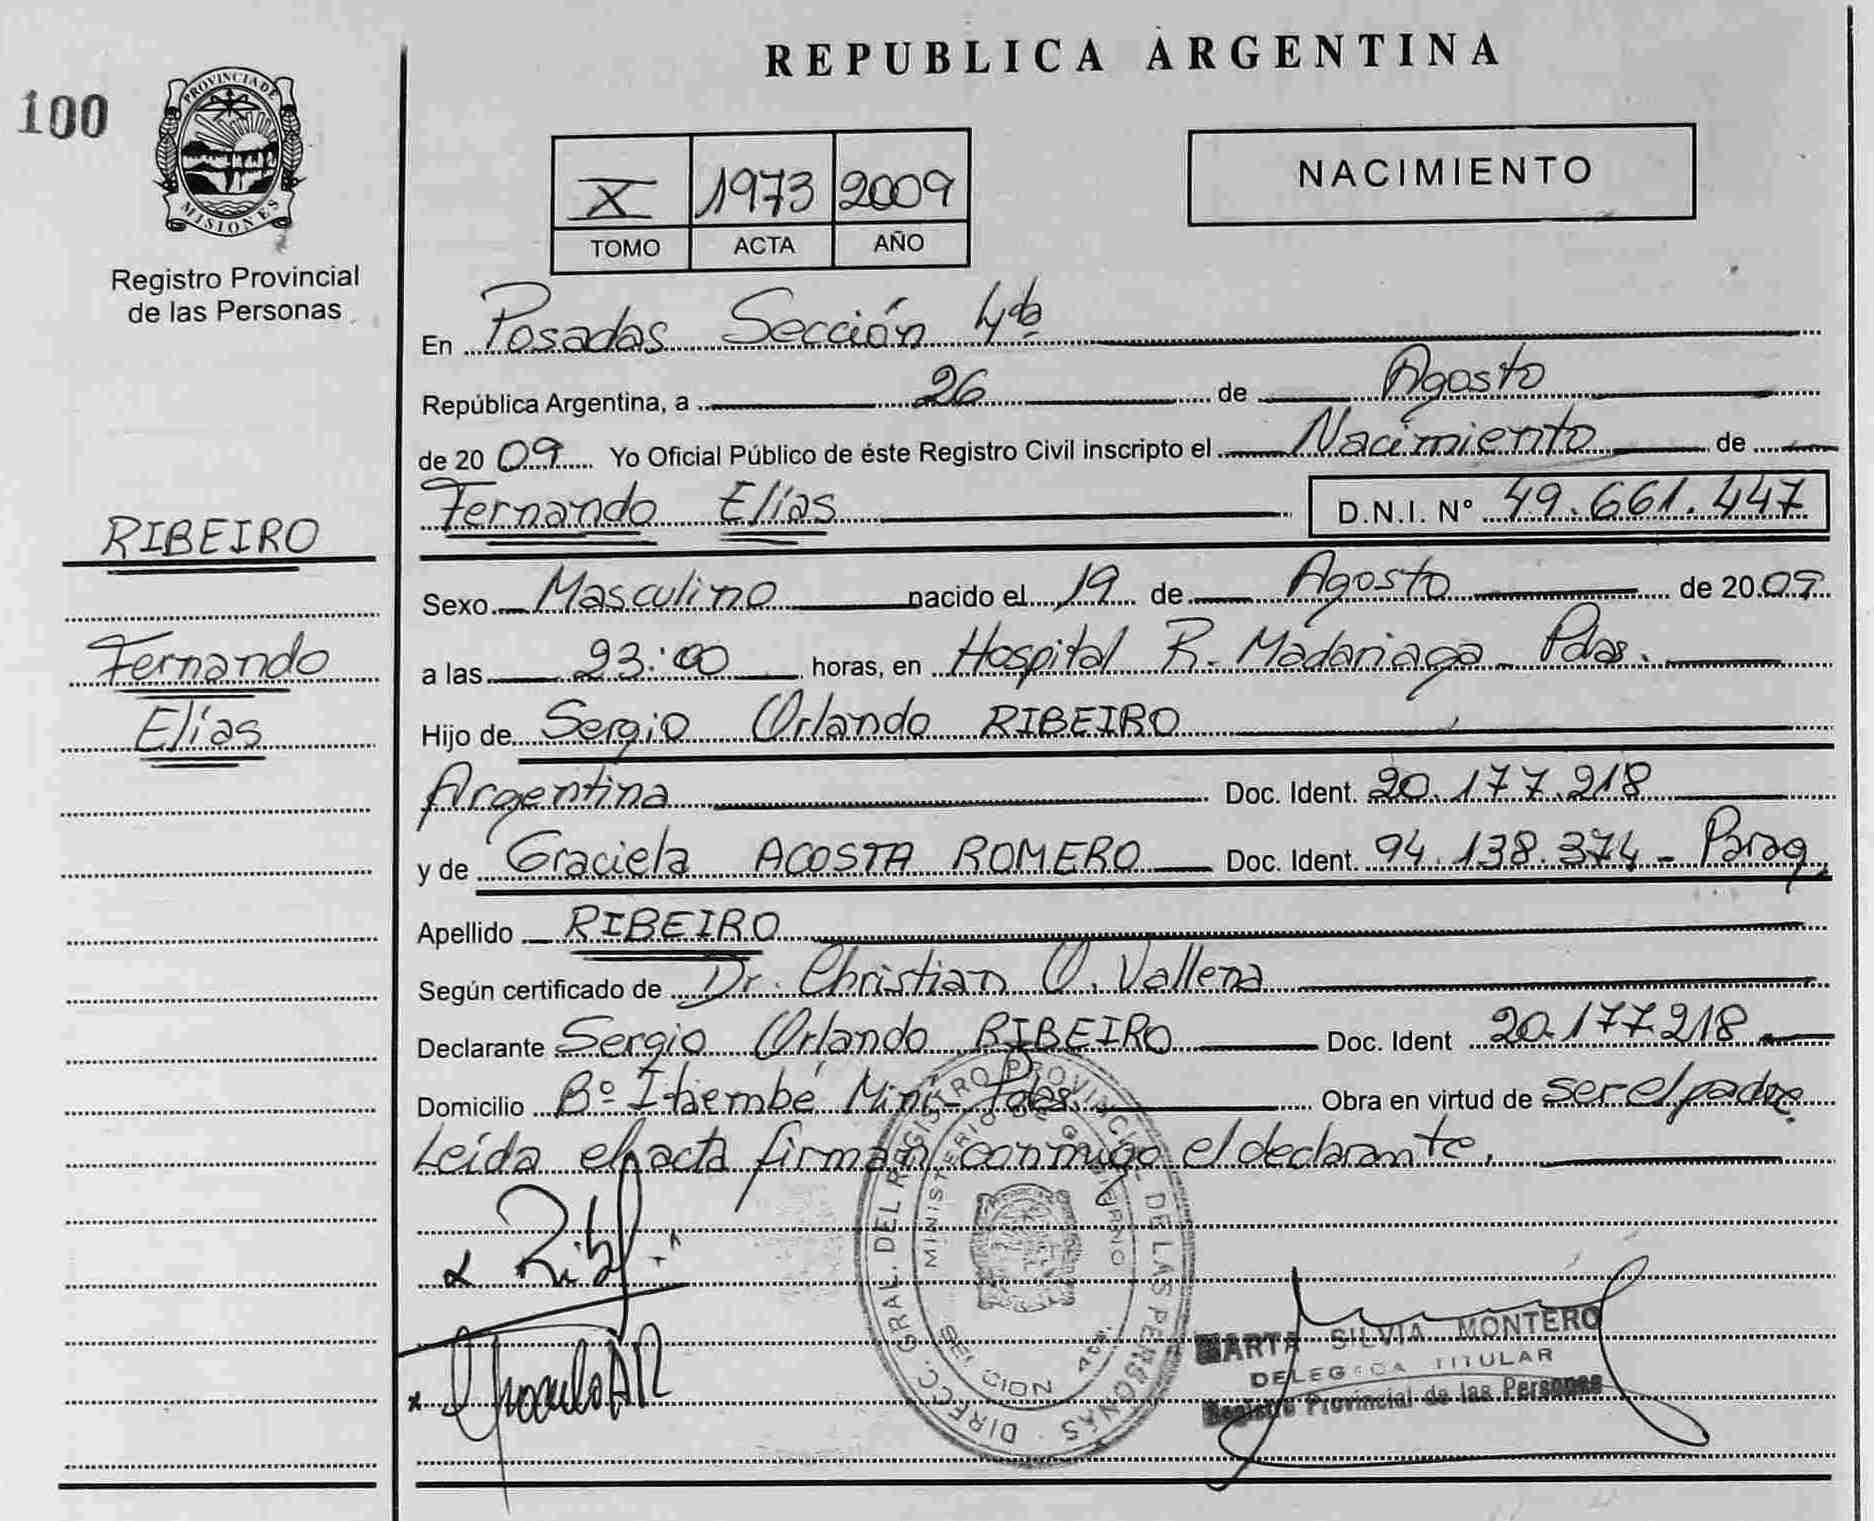 REPUBLICA ARGENTINA
100
PROVINCIA DE
MISIONES
Registro Provincial
de las Personas
X 1973 2009
TOMO ACTA AÑO
NACIMIENTO
En Posadas Sección 4ta
República Argentina, a 26 de Agosto
de 2009 Yo Oficial Público de éste Registro Civil inscripto el Nacimiento de
Fernando Elías D.N.I. N° 49.661.447
RIBEIRO
Fernando
Elías
Sexo Masculino nacido el 19 de Agosto de 2009
a las 23:00 horas, en Hospital R. Madariaga - Pdas.
Hijo de Sergio Orlando RIBEIRO
Argentina Doc. Ident. 20.177.218
y de Graciela ACOSTA ROMERO Doc. Ident. 94.138.374 - Parag.
Apellido RIBEIRO
Según certificado de Dr. Christian O. Vallena
Declarante Sergio Orlando RIBEIRO Doc. Ident 20.177.218
Domicilio Bº Itaembé Miní - Pdas. Obra en virtud de ser el padre
Leída el acta firman conmigo el declarante.
DIRECC. GRAL. DEL REGISTRO PROVINCIAL DE LAS PERSONAS
MINISTERIO DE GOBIERNO
SECCION 4ta.
MARTA SILVIA MONTERO
DELEGADA TITULAR
Registro Provincial de las Personas